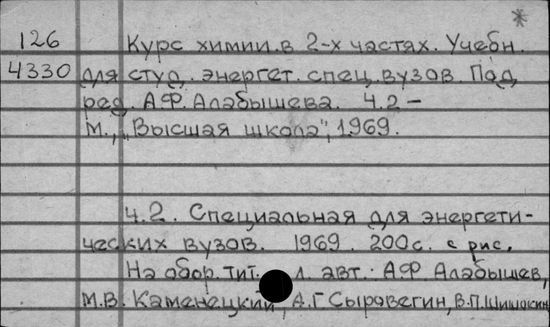 *
126 Курс химии. в 2-х частях. Учебн.
4330 для студ. энергет. спец. вузов. Под
ред. А.Ф. Алабышева. Ч.2 –
М., "Высшая школа", 1969.
Ч.2. Специальная для энергети-
ческих вузов. 1969. 200с. с рис.
На обор. тит. л. авт.: А.Ф Алабышев,
М.В. Каменецкий, А.Г Сыровегин, В.П.Шишокин